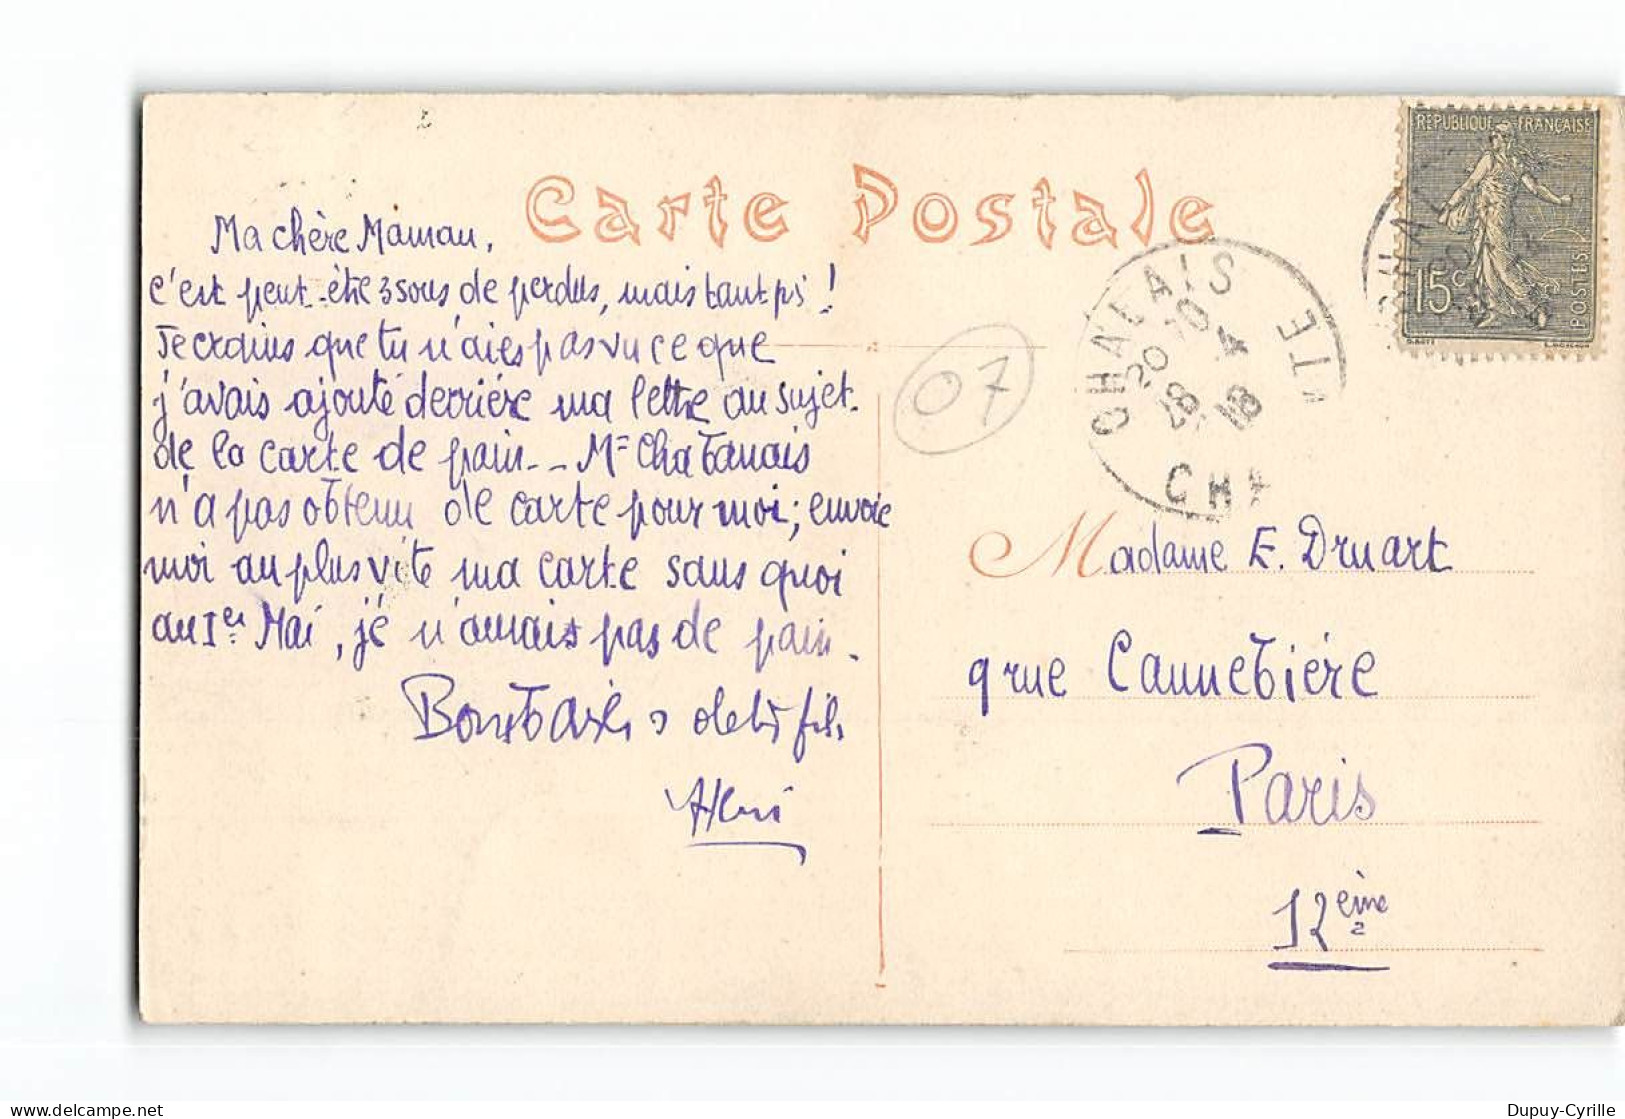 Carte Postale
REPUBLIQUE FRANÇAISE
15c
POSTES
CHALAIS
20 10
28 4
18
CHA TE
07
Ma chère Maman,
c'est peut-être 3 sous de perdus, mais tant pis !
Je crains que tu n'aies pas vu ce que
j'avais ajouté derrière ma lettre au sujet
de la carte de pain -- Me Chatanais
n'a pas obtenu de carte pour moi; envoie
moi au plus vite ma carte sans quoi
au 1er Mai, je n'aurais pas de pain.
Bons baisers de ton fils
Henri
Madame E. Druart
9 rue Cannebière
Paris
12ème
Dupuy-Cyrille